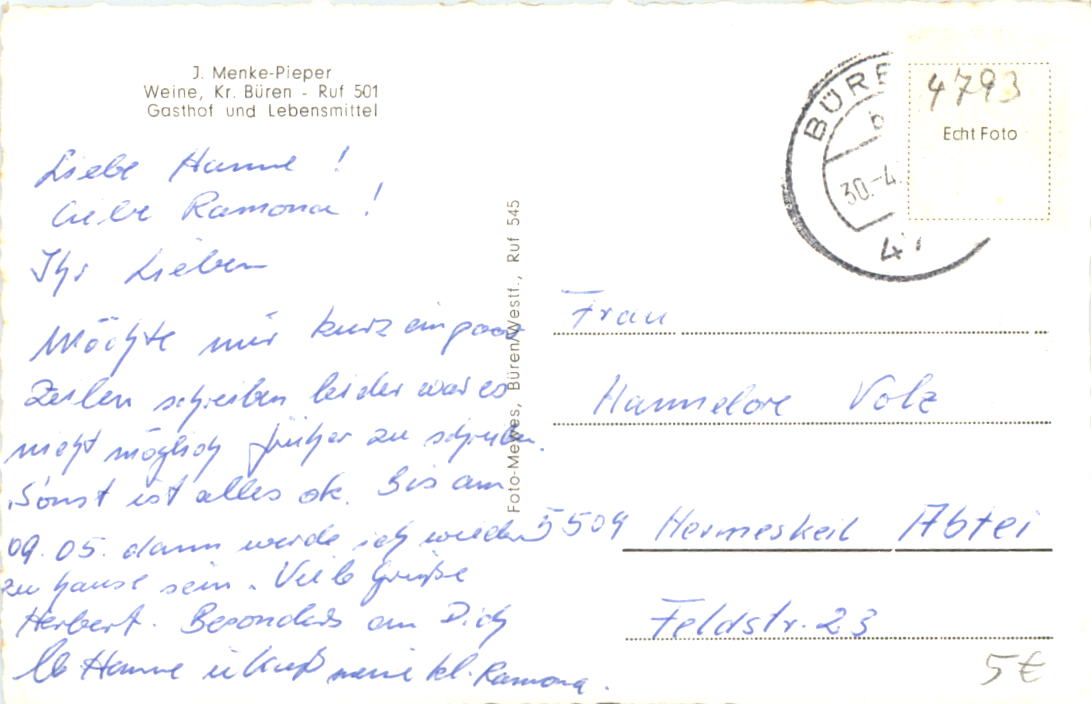 J. Menke-Pieper
Weine, Kr. Büren - Ruf 501
Gasthof und Lebensmittel
Liebe Hanne !
Liebe Ramona !
Ihr Lieben
Möchte mir kurz ein paar
Zeilen schreiben leider war es
nicht möglich früher zu schreiben.
Sonst ist alles ok. Bis am
09.05. dann werde ich wieder
zu hause sein. Viele Grüße
Herbert. Besonders an Dich
lb Hanne u Kuß meine kl. Ramona.
Foto-Mewes, Büren/Westf., Ruf 545
BÜRE
b
30.-4.
4793
Echt Foto
Frau
Hannelore Volz
5509 Hermeskeil Abtei
Feldstr. 23
5€